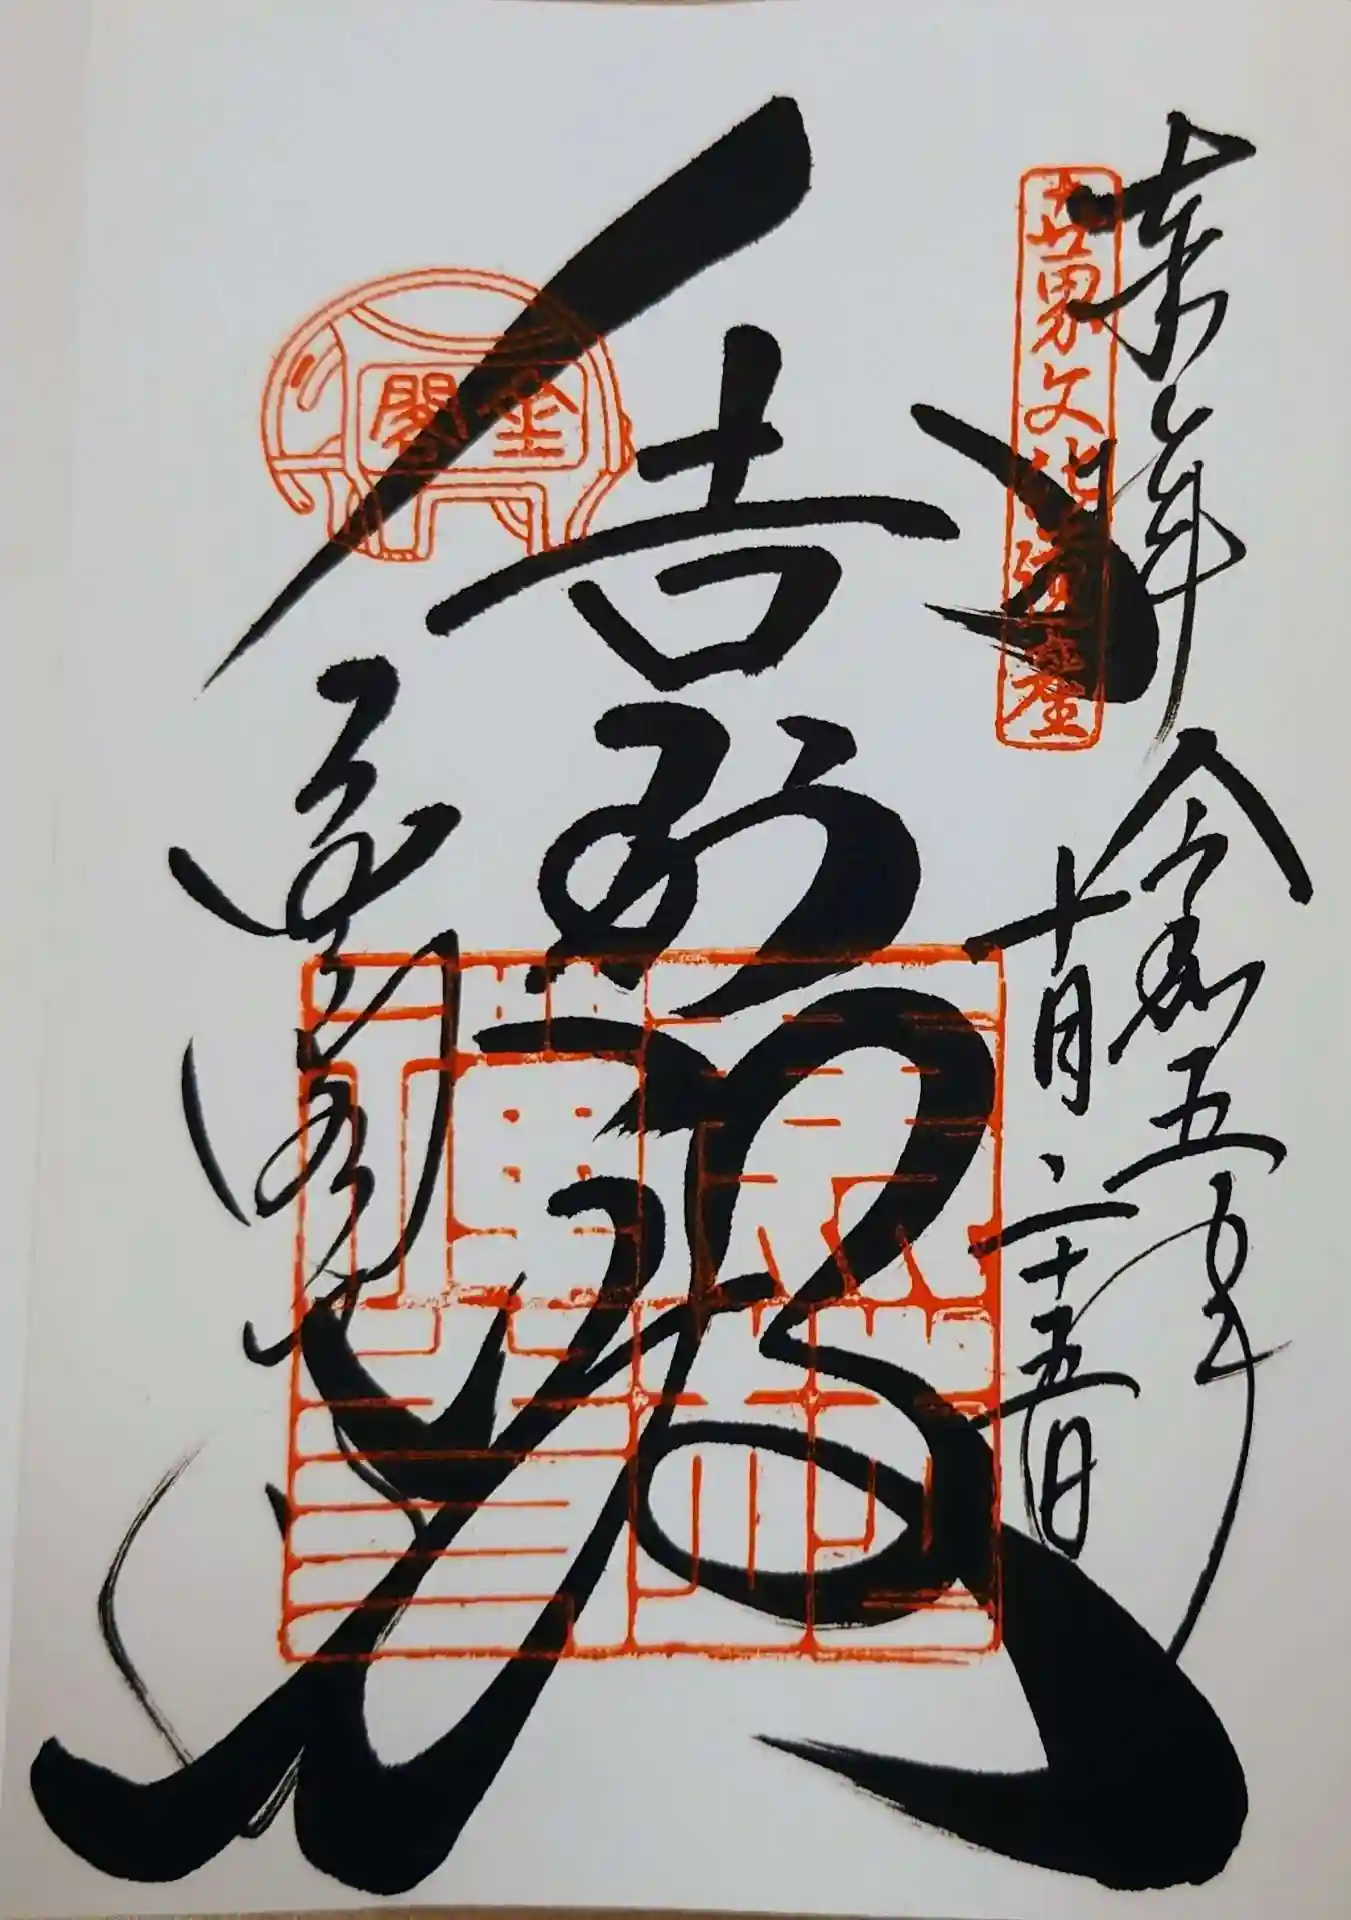 奉拝 令和五年
十月二十五日
世界文化遺産
舎利殿
金閣
金閣寺